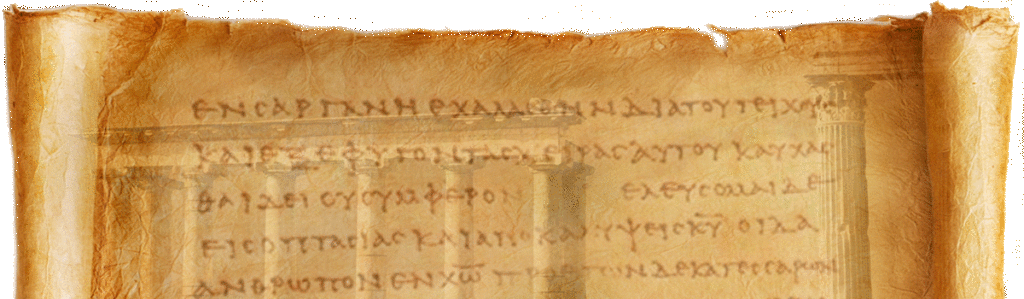 ΕΝϹΑΡΓΑΝΗΕΧΑΛΑϹΘΗΝΔΙΑΤΟΥΤΕΙΧΟΥϹ
ΚΑΙΕΞΕΦΥΓΟΝΤΑϹΧΕΙΡΑϹΑΥΤΟΥ ΚΑΥΧΑϹ
ΘΑΙΔΕΙ ΟΥϹΥΜΦΕΡΟΝ ΕΛΕΥϹΟΜΑΙΔΕ
ΕΙϹΟΠΤΑϹΙΑϹΚΑΙΑΠΟΚΑΛΥΨΕΙϹΚ̅Υ̅ ΟΙΔΑ
ΑΝΘΡΩΠΟΝΕΝΧ̅Ω̅ ΠΡΟΕΤΩΝΔΕΚΑΤΕϹϹΑΡΩΝ